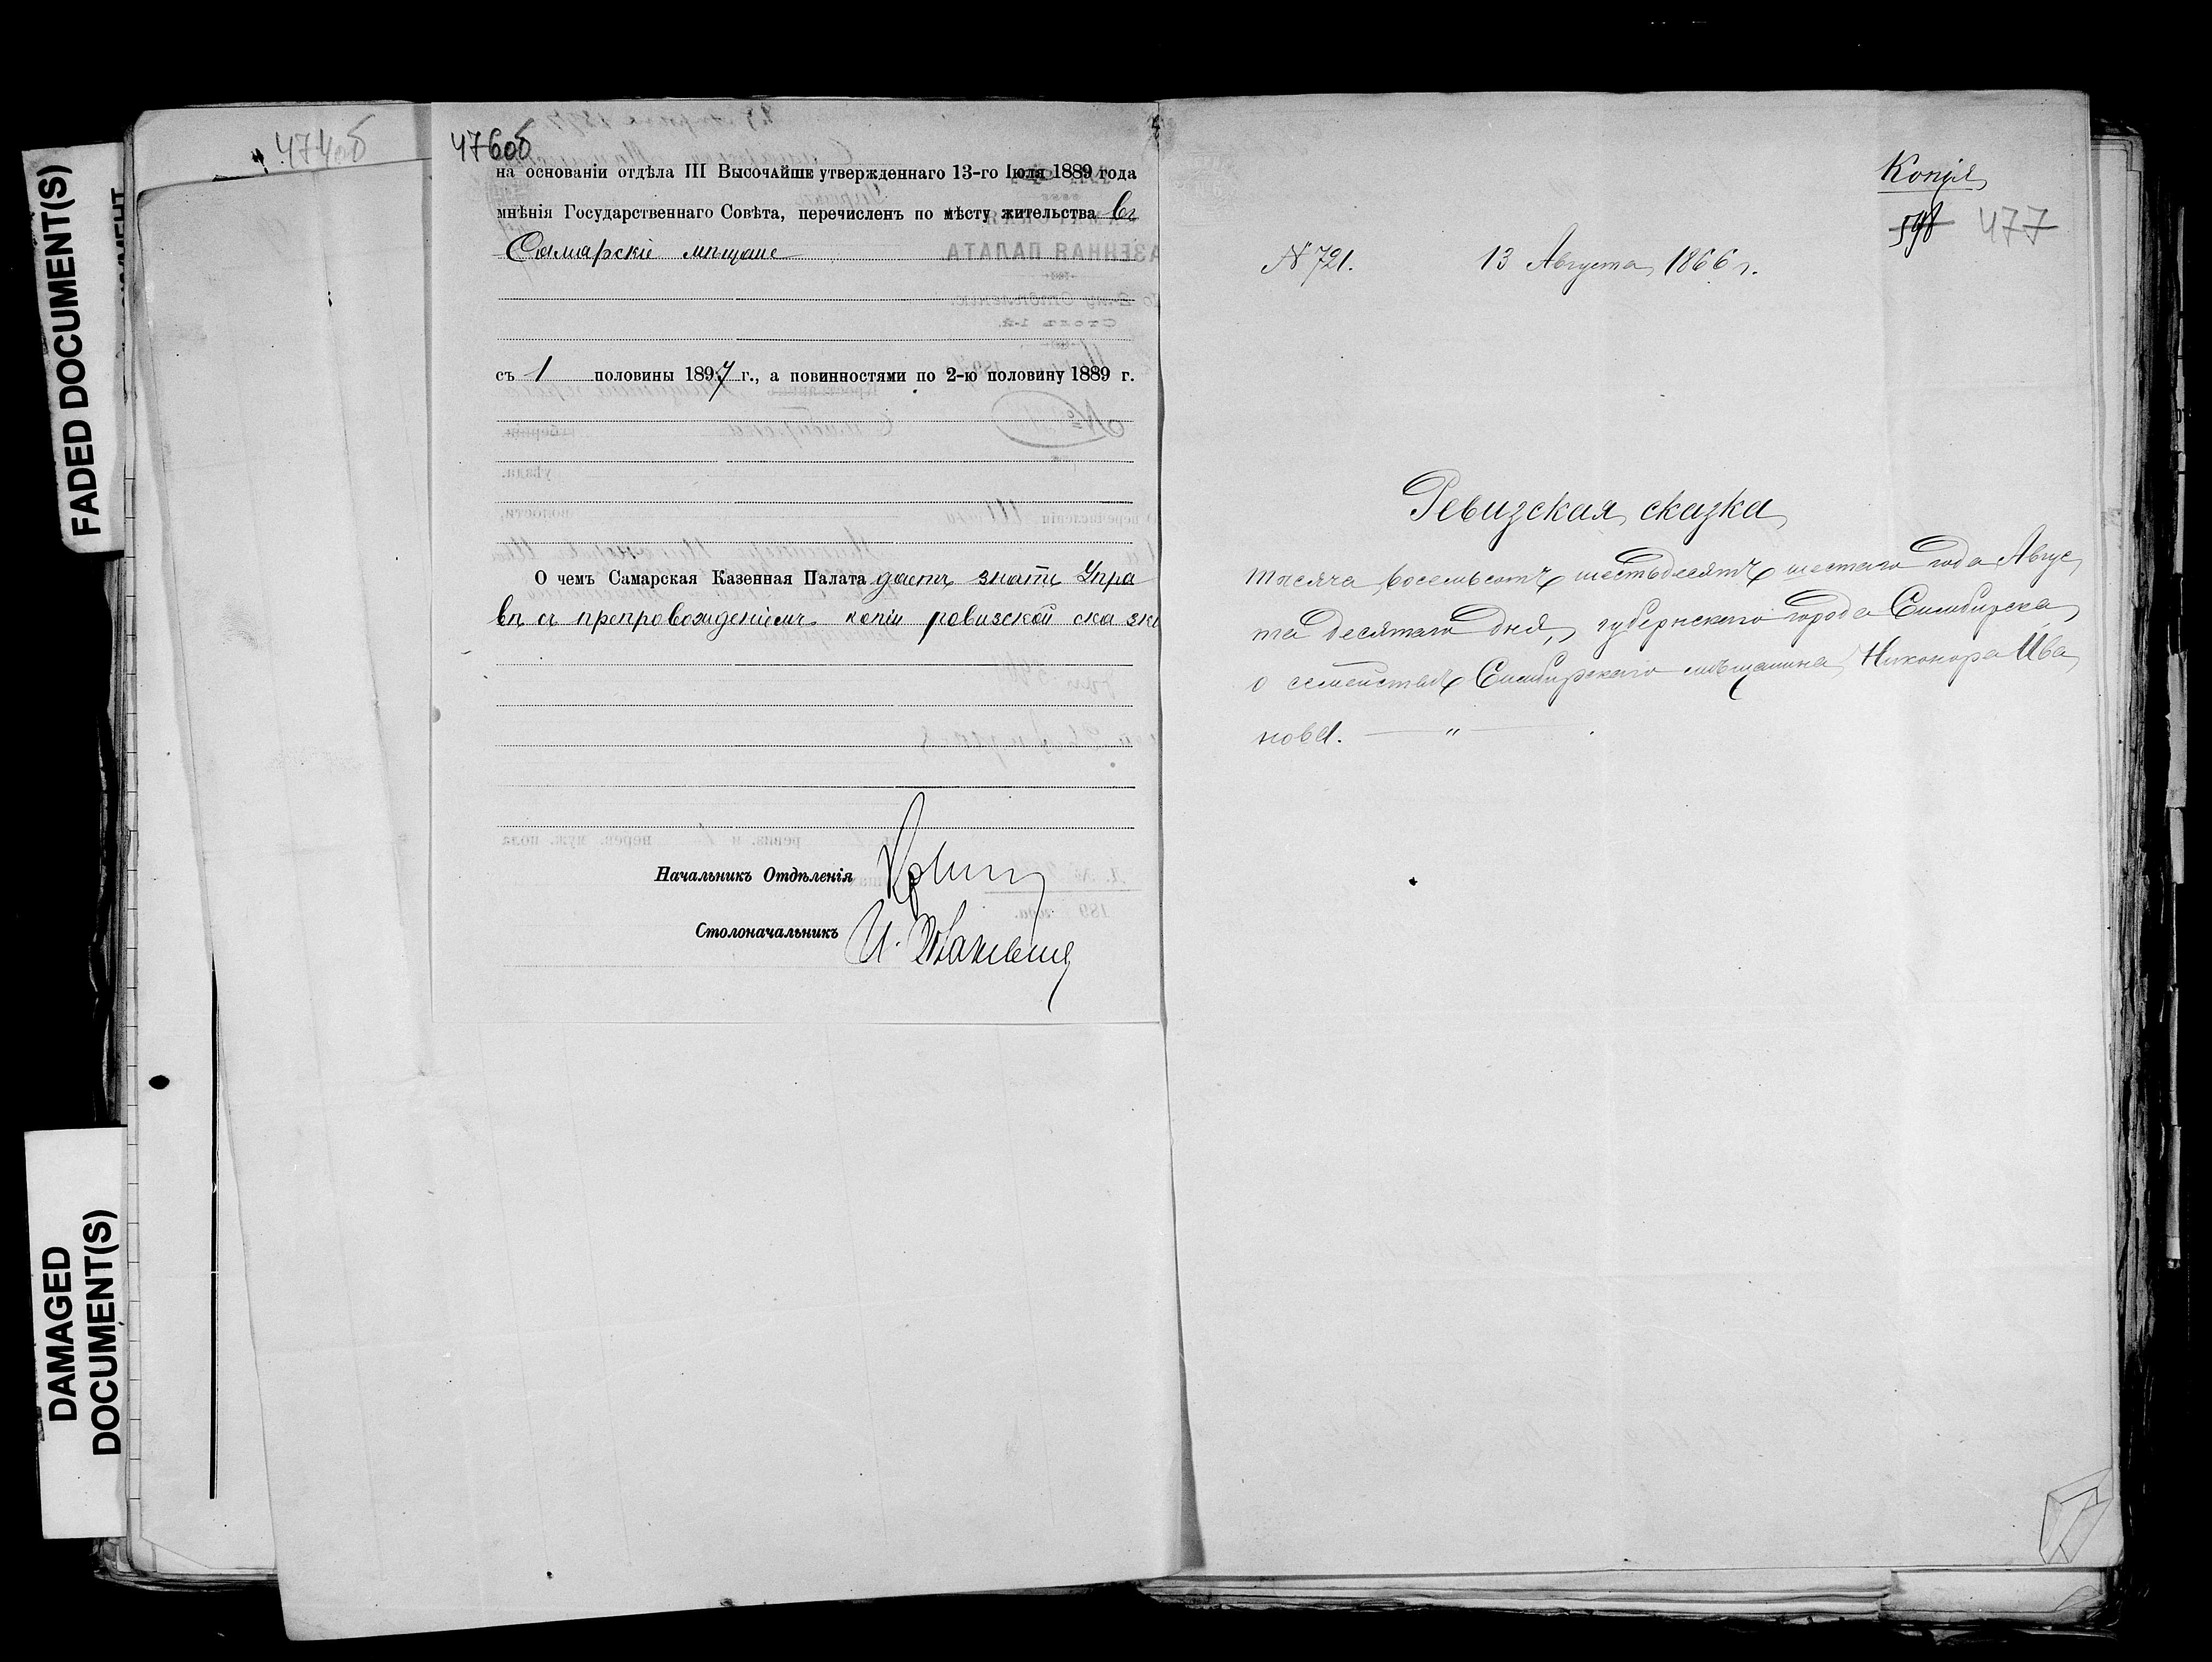 FADED DOCUMENT(S)
DAMAGED
DOCUMENT(S)
474об
476об
на основаніи отдѣла III Высочайше утвержденнаго 13-го Іюля 1889 года
мнѣнія Государственнаго Совѣта, перечисленъ по мѣсту жительства въ
Самарскіе мѣщане
съ 1 половины 1897 г., а повинностями по 2-ю половину 1889 г.
О чемъ Самарская Казенная Палата даетъ знать Упра
вѣ съ препровожденіемъ копіи ревизской сказки
Начальникъ Отдѣленія
Столоначальникъ И.
Копія
598 477
№ 721. 13 Августа 1866 г.
Ревизская сказка
тысяча восемьсотъ шестьдесятъ шестаго года Авгус
та десятаго дня, губернскаго города Симбирска,
о семействѣ Симбирскаго мѣщанина Никонора Ива
нова. — " —